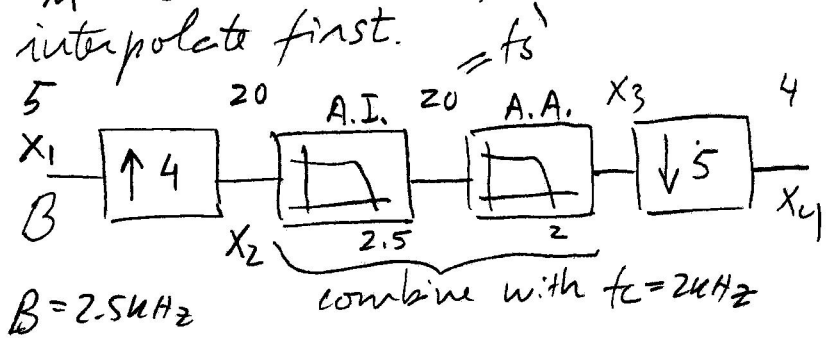 interpolate first.
= fs'
5 20 A.I. 20 A.A. X3 4
X1 ↑4 ↓5
B X2 2.5 2 X4
B = 2.5kHz combine with fc = 2kHz